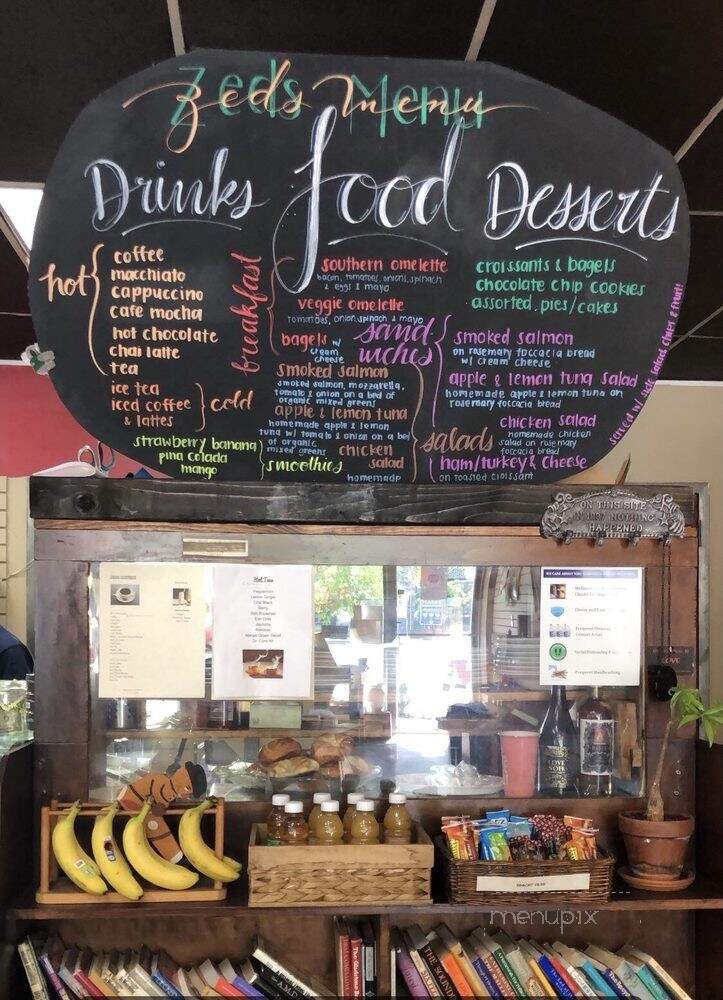 Zeds Menu
zeds menu
Drinks
hot
coffee
macchiato
cappuccino
cafe mocha
hot chocolate
chai latte
tea
ice tea
iced coffee
& lattes
cold
strawberry banana
pina colada
mango
smoothies
food
breakfast
southern omelette
bacon, tomatoes, onions, spinach
& eggs & mayo
veggie omelette
tomatoes, onion, spinach & mayo
bagels w/
cream
cheese
salads
smoked salmon
smoked salmon, mozzarella,
tomato & onion on a bed of
organic mixed greens
apple & lemon tuna
homemade apple & lemon
tuna w/ tomato & onion on a bed
of organic
mixed greens
chicken
salad
homemade
sand
wiches
smoked salmon
on rosemary foccacia bread
w/ cream cheese
apple & lemon tuna salad
homemade apple & lemon tuna on
rosemary foccacia bread
chicken salad
homemade chicken
salad on rosemary
foccacia bread
ham/turkey & cheese
on toasted croissant
served w/ side salad, chips & fruit!
Desserts
croissants & bagels
chocolate chip cookies
assorted pies/cakes
ON THIS SITE
IN 1897 NOTHING
HAPPENED
Hot Teas
Peppermint
Lemon Ginger
Chai Black
Berry
Earl Grey
Jasmine
Frequent Handwashing
LOVE
LOVE
NOIR
THE SOUND
menupix